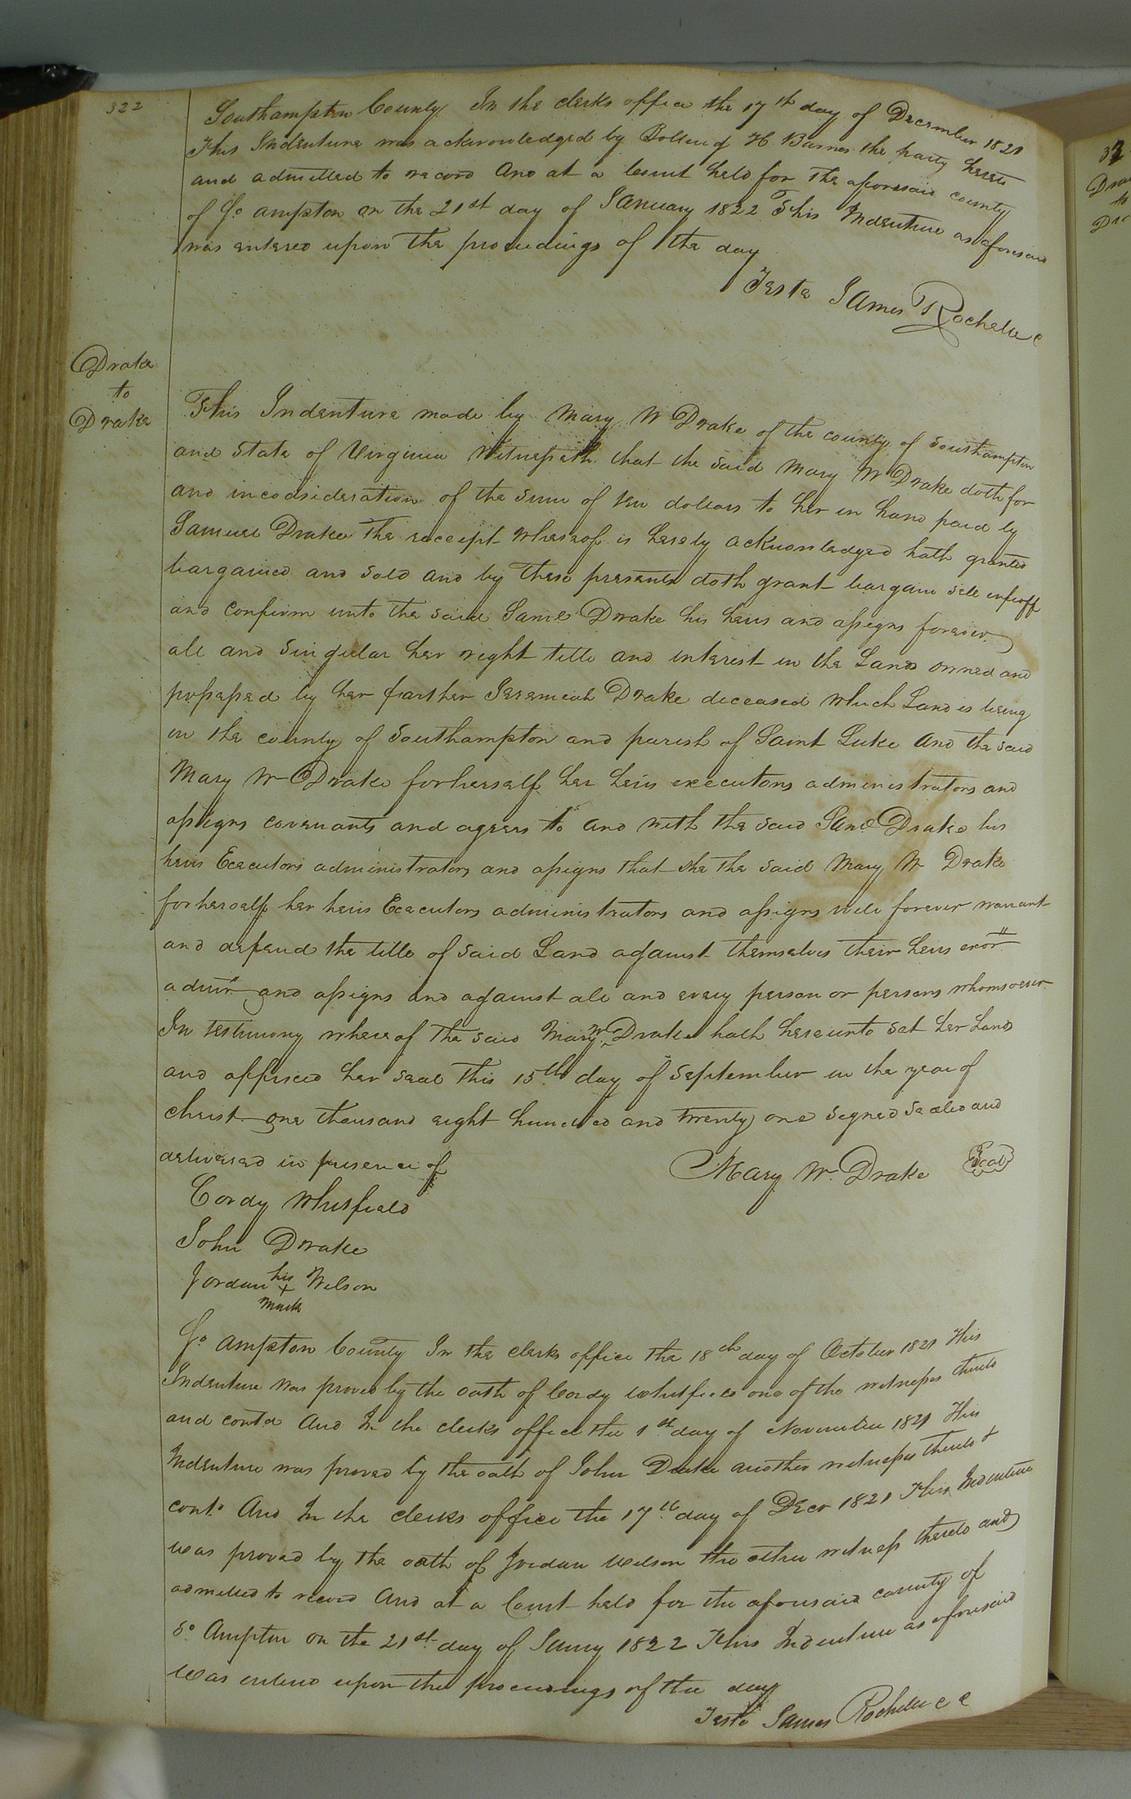 322
Southampton County In the clerks office the 17th day of December 1821
This Indenture was acknowledged by H Barnes the party hereto
and admitted to record And at a Court held for the aforesaid county
of So ampton on the 21st day of January 1822 This Indenture as aforesaid
was entered upon the proceedings of the day
Teste James Rochelle C
Drake
to
Drake
This Indenture made by Mary W Drake of the county of Southampton
and State of Virginia Witnesseth that the said Mary W Drake doth for
and in consideration of the sum of ten dollars to her in hand paid by
Samuel Drake the receipt whereof is hereby acknowledged hath granted
bargained and sold and by these presents doth grant bargain sell enfeoff
and confirm unto the said Saml Drake his heirs and assigns forever
all and singular her right title and interest in the Land owned and
possessed by her farther Jeremiah Drake deceased which Land is being
in the county of Southampton and parish of Saint Luke And the said
Mary W Drake for herself her heirs executors administrators and
assigns covenants and agrees to and with the said Saml Drake his
heirs Executors administrators and assigns that she the said Mary W Drake
for herself her heirs Executors administrators and assigns will forever warrant
and defend the title of said Land against themselves their heirs exors
admrs and assigns and against all and every person or persons whomsoever
In testimony whereof the said Mary W Drake hath hereunto set her hand
and affixed her seal this 15th day of September in the year of
christ one thousand eight hundred and twenty one signed sealed and
delivered in presence of
Mary W. Drake Seal
Cordy Whitfield
John Drake
Jordan his + mark Wilson
So ampton County In the clerks office the 18th day of October 1821 This
Indenture was proved by the oath of Cordy Whitfield one of the witnesses thereto
and contd And In the clerks office the 1st day of November 1821 This
Indenture was proved by the oath of John Drake another witness thereto &
contd And In the clerks office the 17th day of Decr 1821 This Indenture
was proved by the oath of Jordan Wilson the other witness thereto and
admitted to record And at a Court held for the aforesaid county of
So Ampton on the 21st day of Jany 1822 This Indenture as aforesaid
was entered upon the proceedings of the day
Teste James Rochelle C C